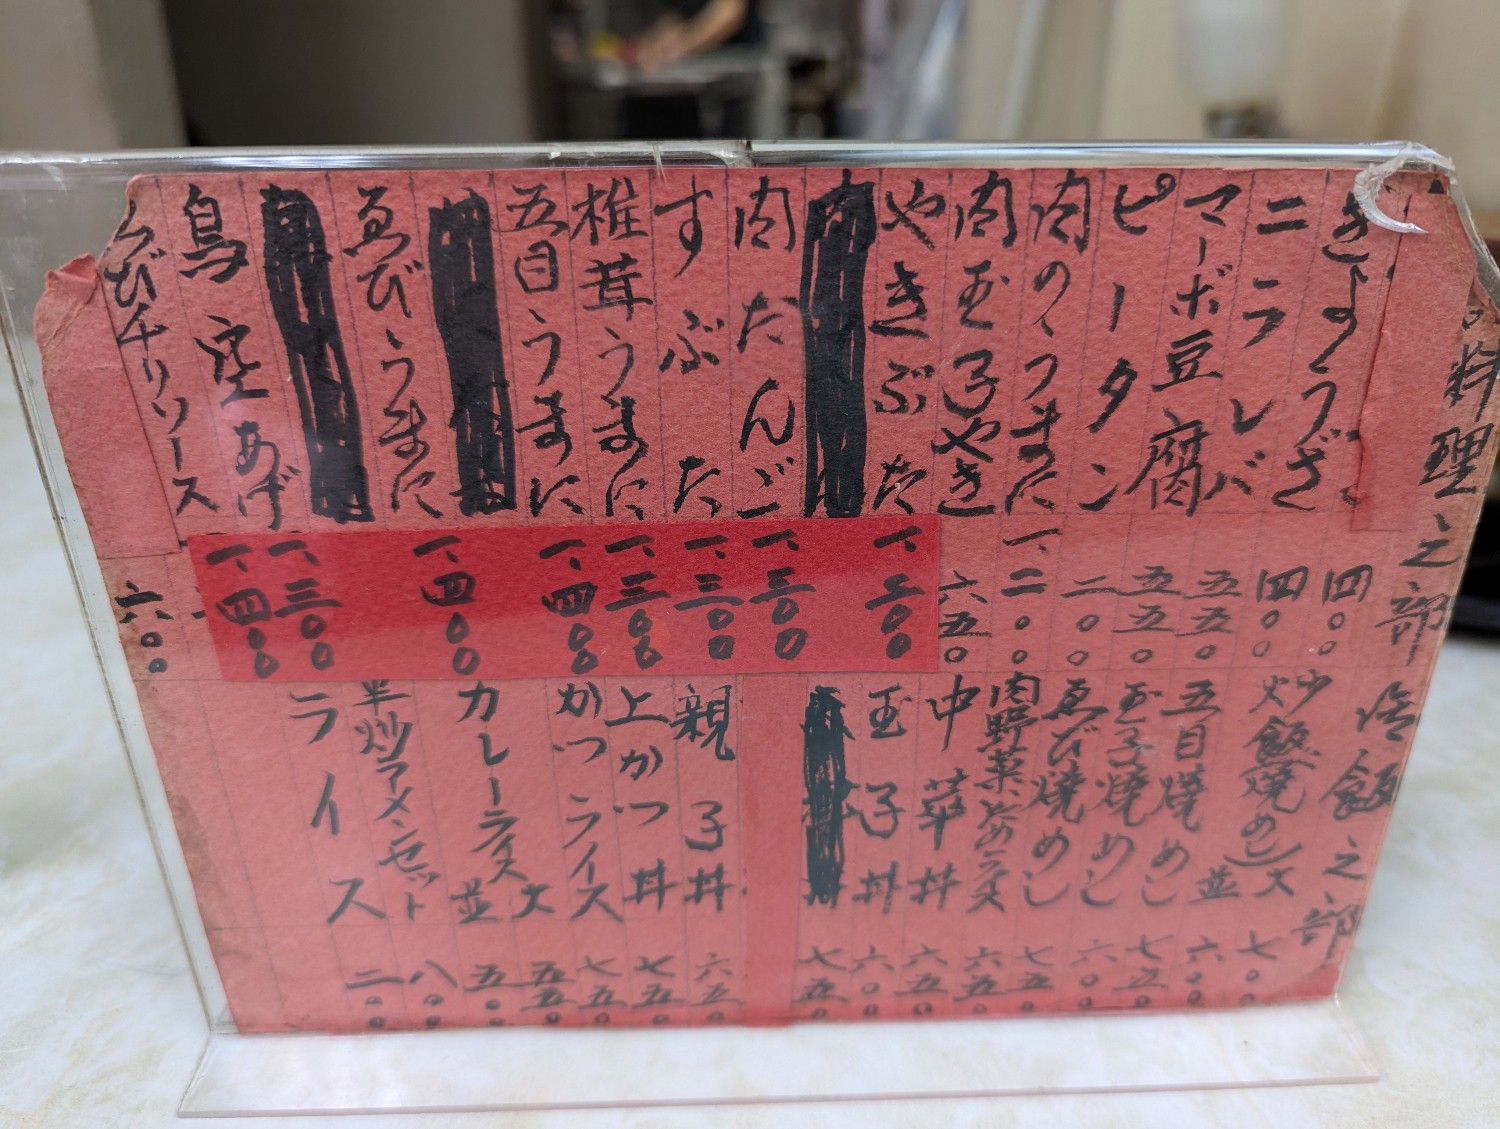 料理之部
ぎょうざ 四〇〇
ニラレバ 四〇〇
マーボ豆腐 五五〇
ピータン 五五〇
肉のうまに 二〇〇
肉玉子やき 一、二〇〇
やきぶた 六五〇
一、二〇〇
肉だんご 一、三〇〇
すぶた 一、三〇〇
椎茸うまに 一、三〇〇
五目うまに 一、四〇〇
ゑびうまに 一、四〇〇
鳥空あげ 一、三〇〇
ゑびチリソース 一、四〇〇
六〇〇
御飯之部
炒飯(焼めし)大 七〇〇
並 六〇〇
五目焼めし 七五〇
玉子焼めし 六〇〇
ゑび焼めし 七五〇
肉野菜いためライス 六五〇
中華丼 六五〇
玉子丼 六〇〇
七五〇
親子丼 六五〇
上かつ丼 七五〇
かつライス 七五〇
カレーライス 大 五五〇
並 五〇〇
半炒メンセット 八〇〇
ライス 二〇〇